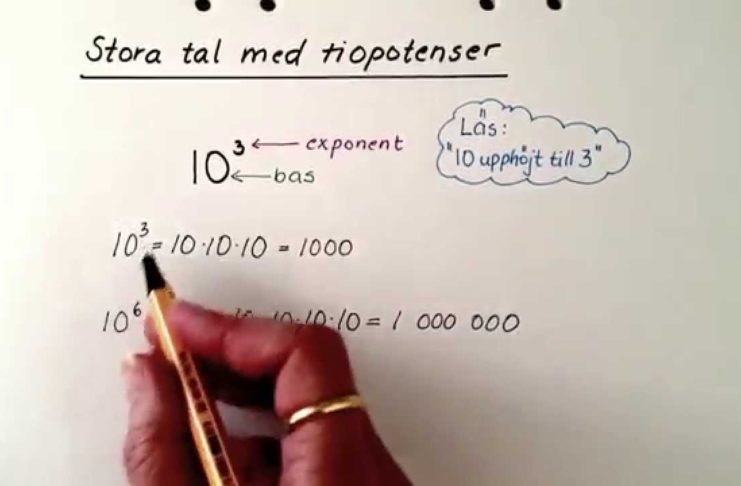 Stora tal med tiopotenser
10³ ← exponent
← bas
Läs:
"10 upphöjt till 3"
10³ = 10·10·10 = 1000
10⁶ 10·10·10 = 1 000 000